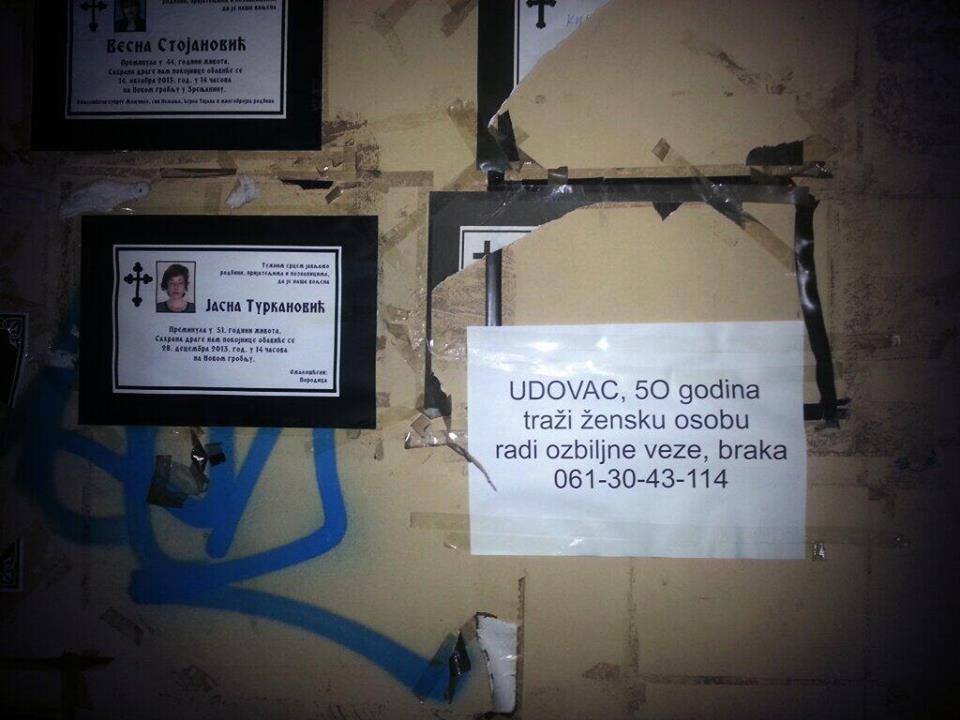 родбини, пријатељима и познаницима,
да је наша вољена
Весна Стојановић
Преминула у 44. години живота.
Сахрана драге нам покојнице обавиће се
14. октобра 2013. год. у 14 часова
на Новом гробљу у Зрењанину.
Ожалошћени: супруг син Немања, ћерка и многобројна родбина
Тужним срцем јављамо
родбини, пријатељима и познаницима,
да је наша вољена
Јасна Туркановић
Преминула у 51. години живота.
Сахрана драге нам покојнице обавиће се
28. децембра 2013. год. у 14 часова
на Новом гробљу.
Ожалошћени:
Породица
UDOVAC, 5O godina
traži žensku osobu
radi ozbiljne veze, braka
061-30-43-114